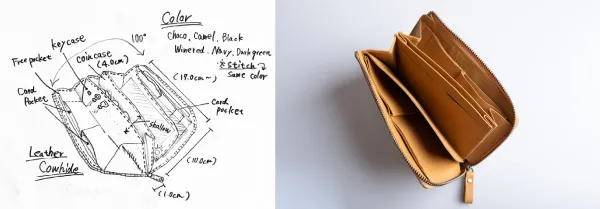 Color
Choco. Camel. Black
Winered. Navy. Darkgreen
※stitch
same color
100°
key case
Free pocket
coincase
(4.0cm)
(19.0cm~)
Card
Pocket
Card
pocket
shallow
Leather
Cowhide
(10.0cm)
(1.0cm)